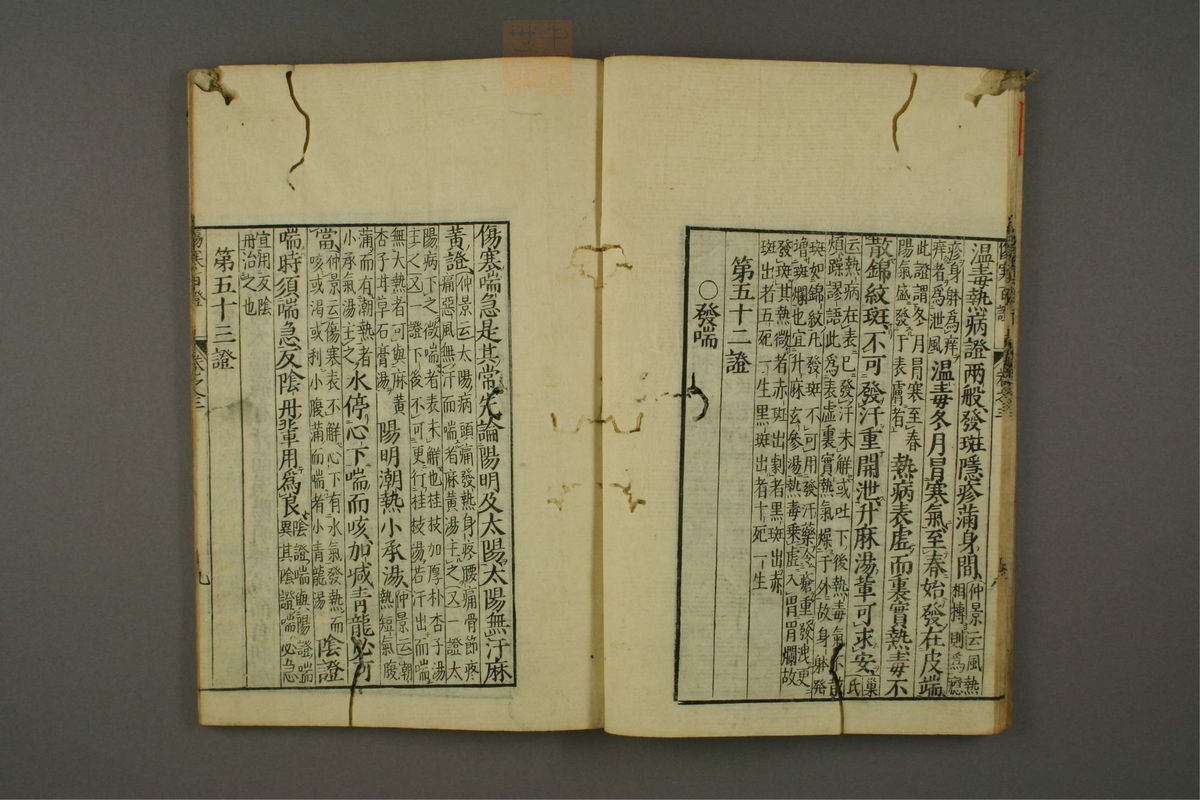 溫毒熱病證兩般發斑隱疹滿身間仲景云風熱相搏則為癮
疹身躰為痒痒者為泄風溫毒冬月冒寒氣至春始發在皮端
此證謂冬月冒寒至春陽氣盛發于表膚者熱病表虛而裏實熱毒不
散錦紋斑不可發汗重開泄升麻湯輩可求安巢氏
云熱病在表已發汗未解或吐下後熱毒氣不散煩躁謬語此為表虛裏實熱氣燥于外故身躰發
斑如錦紋凡發斑不可用發汗藥令瘡重發洩更增斑爛也宜升麻玄參湯熱毒乗虛入胃胃爛故
發斑其熱微者赤斑出劇者黑斑出赤斑出者五死一生黑斑出者十死一生
第五十二證
○發喘
傷寒喘急是其常先論陽明及太陽太陽無汗麻
黃證仲景云太陽病頭痛發熱身疼腰痛骨節疼痛惡風無汗而喘者麻黃湯主之又一證太
陽病下之微喘者表未解也桂枝加厚朴杏子湯主之又一證下後不可更行桂枝湯若汗出而喘
無大熱者可與麻黃杏子甘草石膏湯陽明潮熱小承湯仲景云潮熱短氣腹
滿而喘有潮熱者小承氣湯主之水停心下喘而咳加減青龍必可
當仲景云傷寒表不解心下有水氣發熱而咳或渴或利小腹滿而喘者小青龍湯陰證
喘時須喘急反陰丹輩用為良陰證喘與陽證喘異其陰證喘必急
宜用反陰丹治之也
第五十三證
卷之三
九